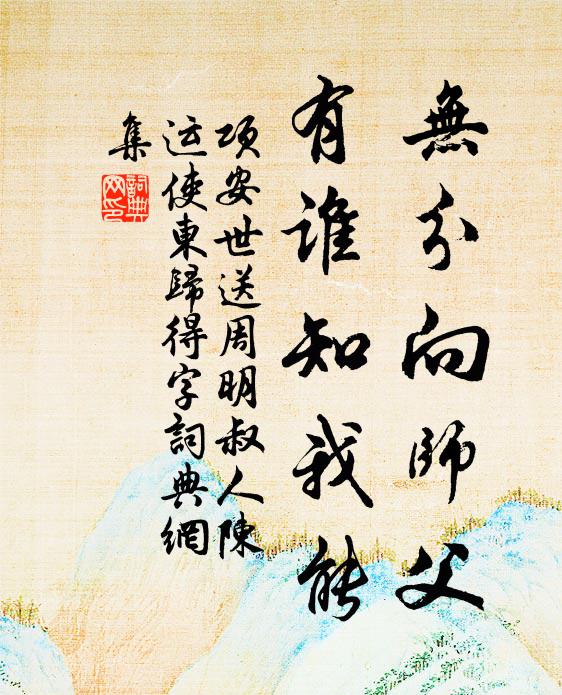 無分向師父
有誰知我能
項安世送周明叔人陳
运使東歸得字詞典網
集
詞典
网印